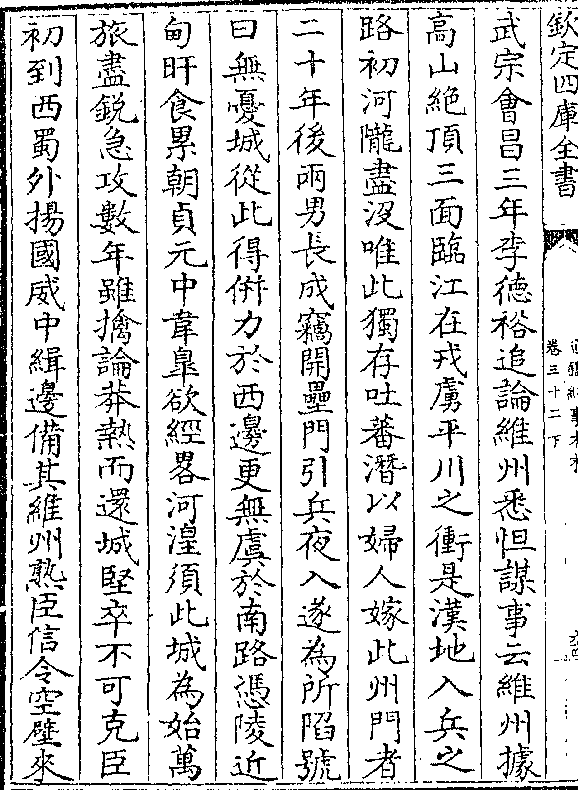 欽定四庫全書
卷三十二下
武宗會昌三年李德裕追論維州悉怛謀事云維州據
高山絶頂三面臨江在戎虜平川之衝是漢地入兵之
路初河隴盡沒唯此獨存吐蕃潛以婦人嫁此州門者
二十年後兩男長成竊開壘門引兵夜入遂為所陷號
曰無憂城從此得併力於西邊更無虞於南路憑陵近
甸旰食累朝貞元中韋臯欲經畧河湟須此城為始萬
旅盡鋭急攻數年雖擒論莽熱而還城堅卒不可克臣
初到西蜀外揚國威中緝邊備其維州熟臣信令空壁來